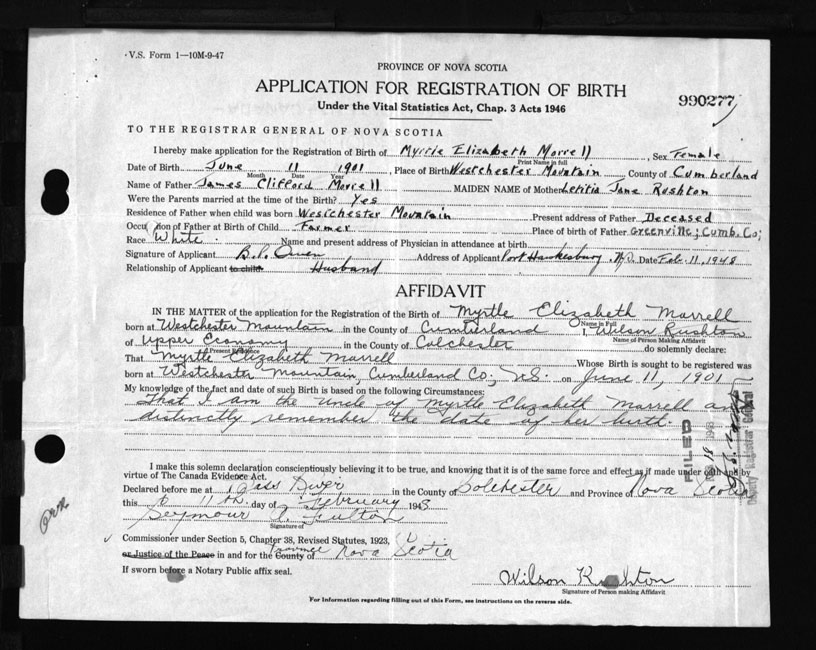 V.S. Form 1—10M-9-47
PROVINCE OF NOVA SCOTIA
APPLICATION FOR REGISTRATION OF BIRTH
990277
Under the Vital Statistics Act, Chap. 3 Acts 1946
TO THE REGISTRAR GENERAL OF NOVA SCOTIA
I hereby make application for the Registration of Birth of Myrtle Elizabeth Morrell, Sex Female
Print Name in full
Date of Birth June 11 1901, Place of Birth Westchester Mountain County of Cumberland
Month Date Year
Name of Father James Clifford Morrell MAIDEN NAME of Mother Letitia Jane Rushton
Were the Parents married at the time of the Birth? Yes
Residence of Father when child was born Westchester Mountain Present address of Father Deceased
Occupation of Father at Birth of Child Farmer Place of birth of Father Greenville; Cumb. Co;
Race White. Name and present address of Physician in attendance at birth
Signature of Applicant B.P. Owen Address of Applicant Port Hawkesbury. N.S. Date Feb. 11, 1948
Relationship of Applicant to child Husband
AFFIDAVIT
IN THE MATTER of the application for the Registration of the Birth of Myrtle Elizabeth Marrell
Name in Full
born at Westchester Mountain in the County of Cumberland I, Wilson Rushton
Name of Person Making Affidavit
of Upper Economy in the County of Colchester do solemnly declare:
Present Residence
That Myrtle Elizabeth Marrell Whose Birth is sought to be registered was
born at Westchester Mountain, Cumberland Co., N.S. on June 11, 1901
My knowledge of the fact and date of such Birth is based on the following Circumstances:
That I am the uncle of Myrtle Elizabeth Marrell and
distinctly remember the date of her birth.
FILED
I make this solemn declaration conscientiously believing it to be true, and knowing that it is of the same force and effect as if made under oath and by
virtue of The Canada Evidence Act.
Declared before me at Bass River in the County of Colchester and Province of Nova Scotia
this 11th. day of February 194
Seymour Fulton
Signature of
Commissioner under Section 5, Chapter 38, Revised Statutes, 1923,
or Justice of the Peace in and for the County of Province Nova Scotia
If sworn before a Notary Public affix seal.
Wilson Rushton
Signature of Person making Affidavit
For Information regarding filling out of this Form, see instructions on the reverse side.